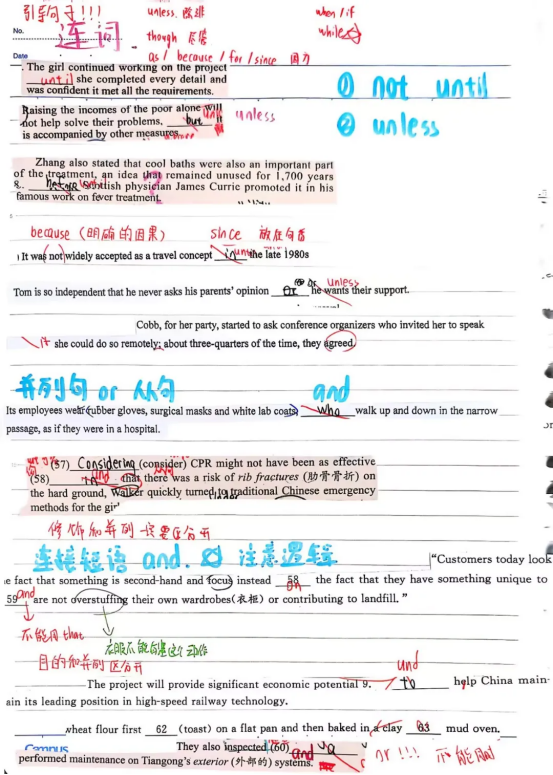 引导句子!!!
unless. 除非
when / if
No.
连词
though 尽管
while
Date
as / because / for / since 因为
The girl continued working on the project
until she completed every detail and
was confident it met all the requirements.
① not until
Raising the incomes of the poor alone will
not help solve their problems, but it unless
② unless
is accompanied by other measures.
Zhang also stated that cool baths were also an important part
of the treatment, an idea that remained unused for 1,700 years
8. before Scottish physician James Currie promoted it in his
famous work on fever treatment.
?
because (明确的因果) since 放在句首
It was not widely accepted as a travel concept in until the late 1980s
Tom is so independent that he never asks his parents' opinion or unless he wants their support.
Cobb, for her party, started to ask conference organizers who invited her to speak
if she could do so remotely; about three-quarters of the time, they agreed.
并列句 or 从句 and
Its employees wear rubber gloves, surgical masks and white lab coats who walk up and down in the narrow
passage, as if they were in a hospital.
(57) Considering (consider) CPR might not have been as effective
(58) and that there was a risk of rib fractures (肋骨骨折) on
the hard ground, Walker quickly turned to traditional Chinese emergency
methods for the gir
修饰和并列一定要区分开
连接短语 and. 注意逻辑
"Customers today look
e fact that something is second-hand and focus instead 58 on the fact that they have something unique to
59 and are not overstuffing their own wardrobes(衣柜) or contributing to landfill. "
不能用 that
衣服不能创造这个动作
目的和并列区分开
and
The project will provide significant economic potential 9. to help China main-
ain its leading position in high-speed railway technology.
wheat flour first 62 (toast) on a flat pan and then baked in a clay 63 mud oven.
Campus
They also inspected (60) and
or !!! 不能用
performed maintenance on Tiangong's exterior (外部的) systems.